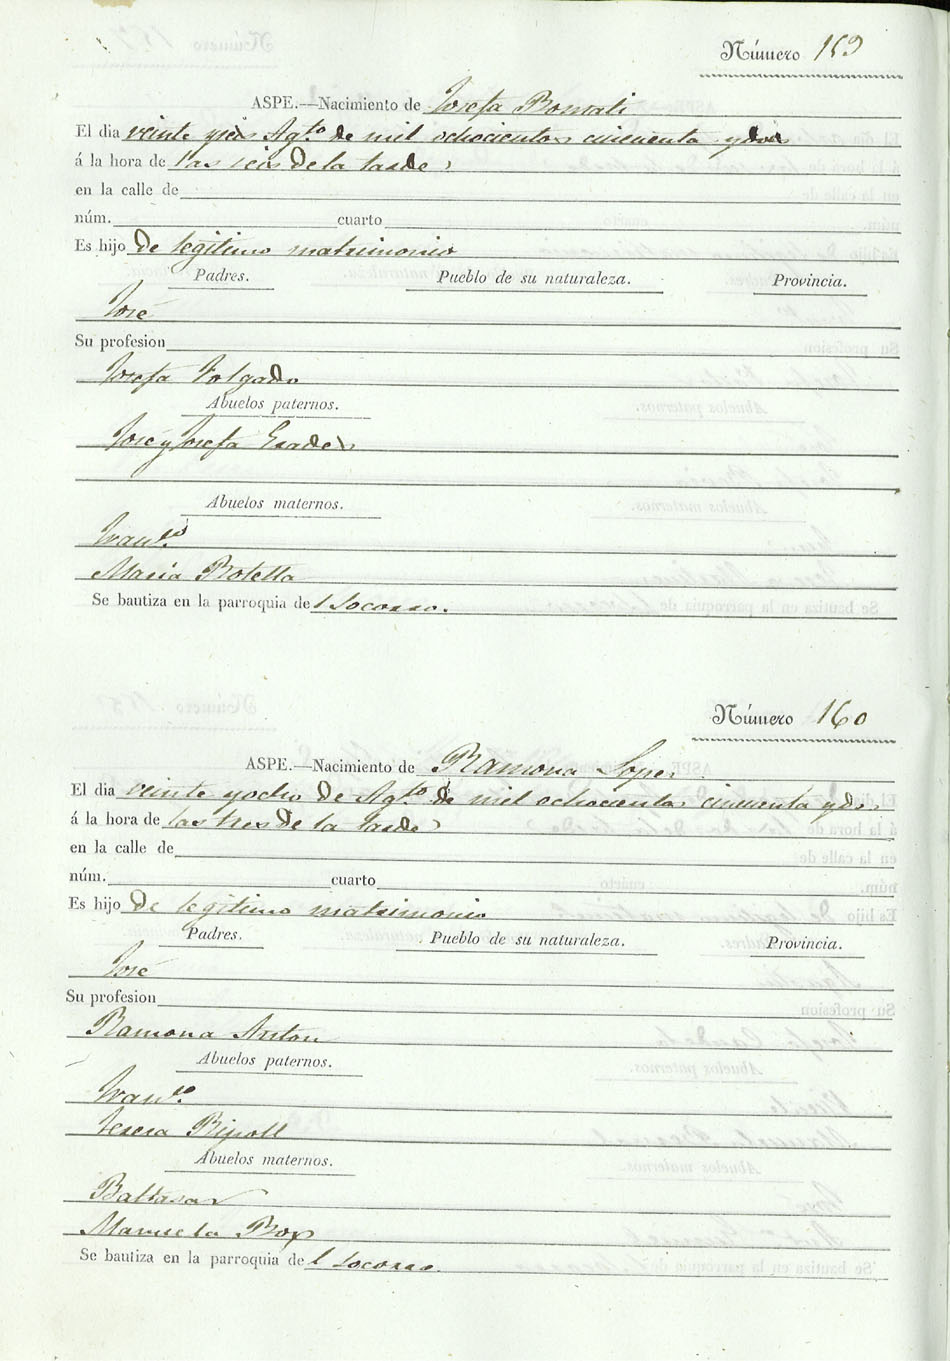 Número 159
ASPE.—Nacimiento de Josefa Bonmati
El dia veinte y seis Agto de mil ochocientos cincuenta y dos
á la hora de las seis de la tarde
en la calle de
núm. cuarto
Es hijo de legitimo matrimonio
Padres. Pueblo de su naturaleza. Provincia.
José
Su profesion
Josefa Folgado
Abuelos paternos.
José y Josefa
Abuelos maternos.
Franco
Maria Botella
Se bautiza en la parroquia del Socorro.
Número 160
ASPE.—Nacimiento de Ramona Lopez
El dia veinte y ocho de Agto de mil ochocientos cincuenta y dos
á la hora de las tres de la tarde
en la calle de
núm. cuarto
Es hijo de legitimo matrimonio
Padres. Pueblo de su naturaleza. Provincia.
José
Su profesion
Ramona Anton
Abuelos paternos.
Franco
Teresa Ripoll
Abuelos maternos.
Baltasar
Manuela Bop
Se bautiza en la parroquia del Socorro.